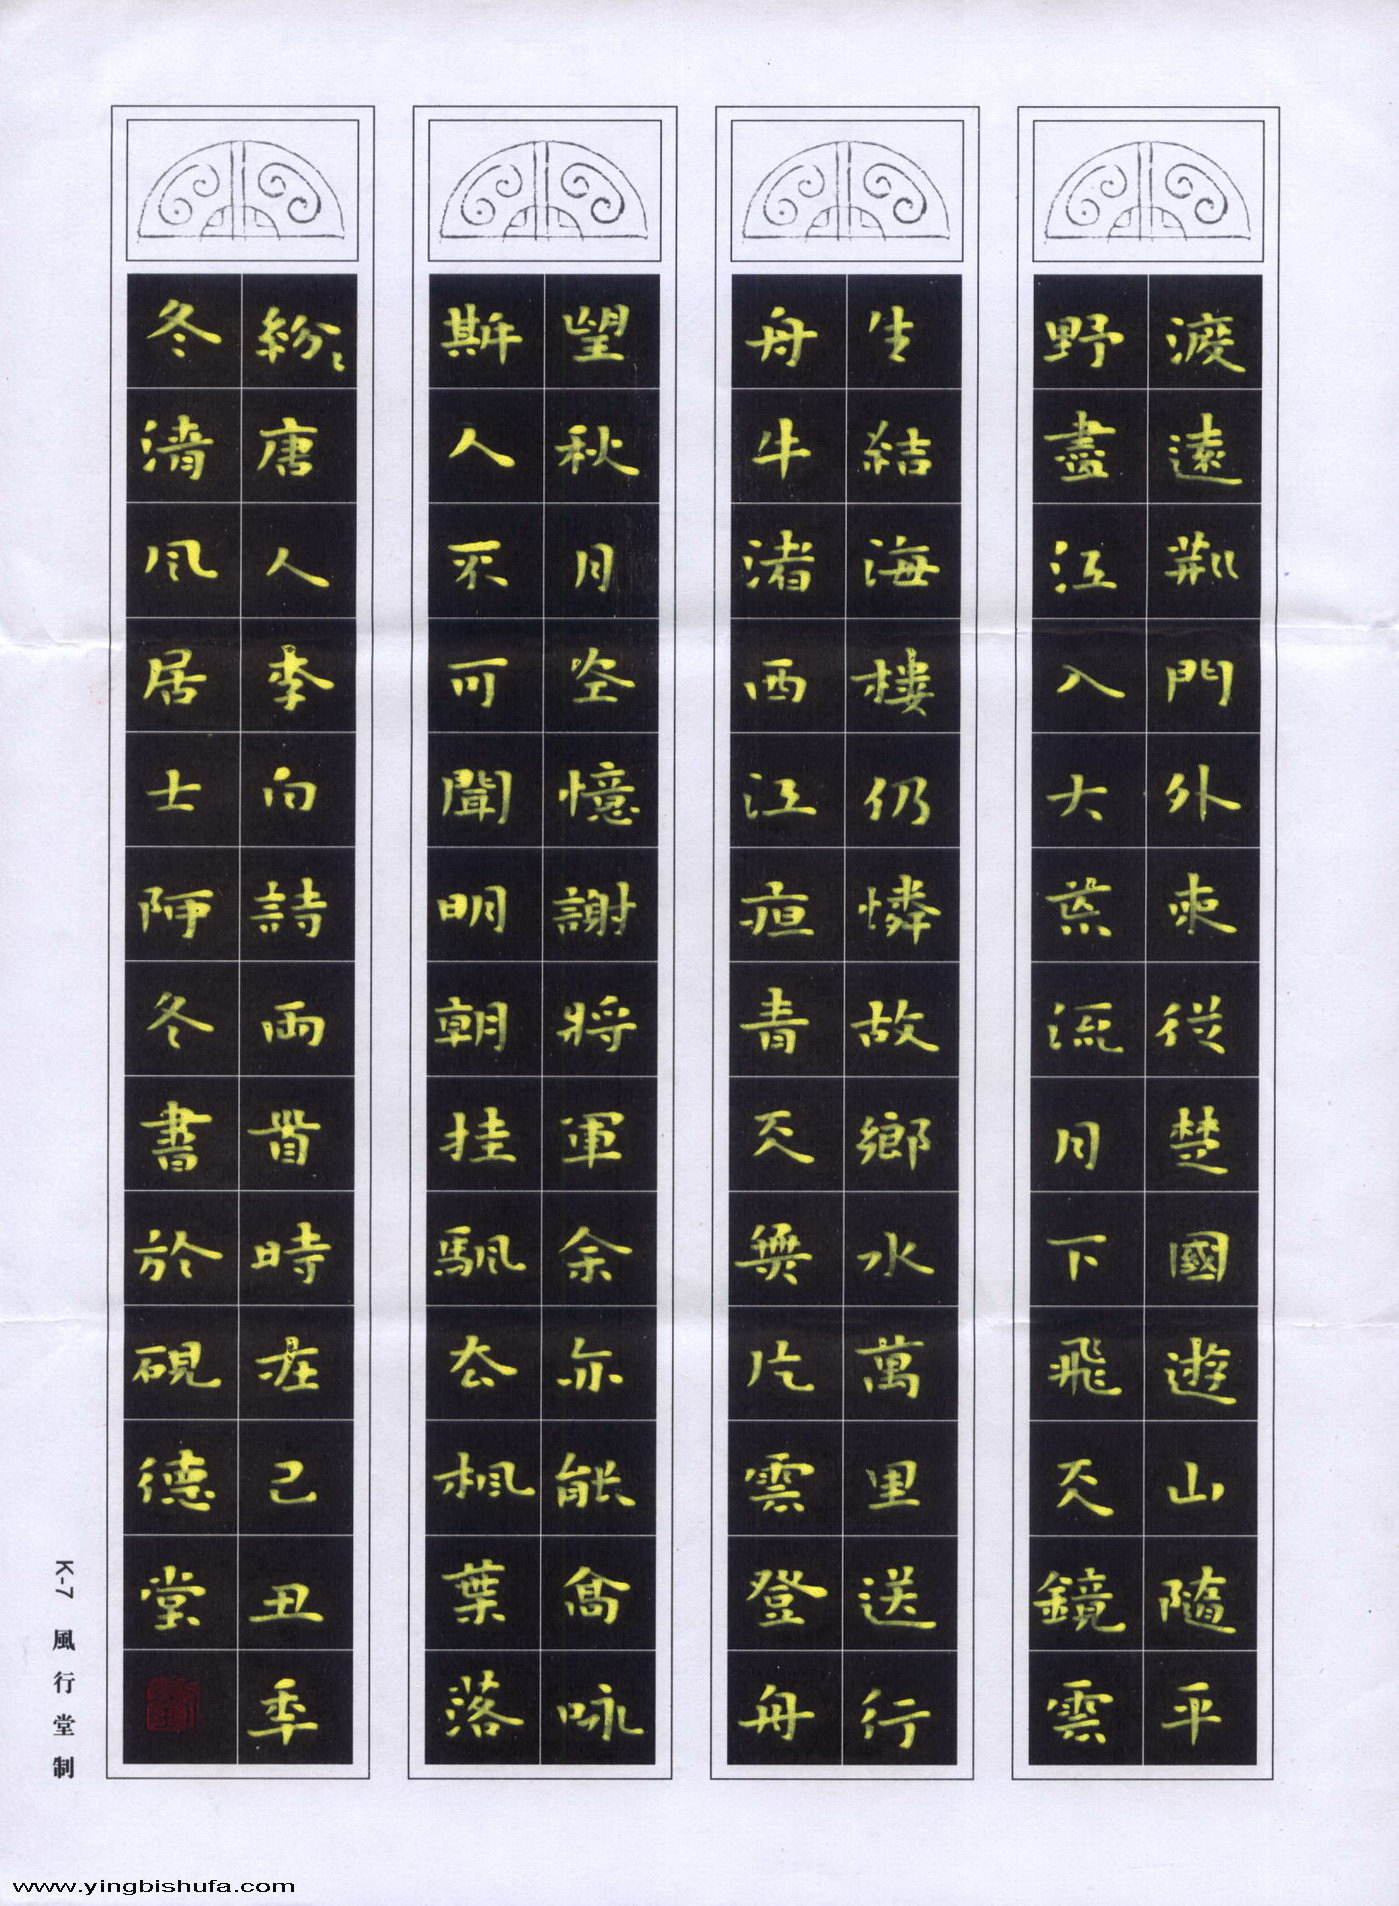 渡遠荊門外來從楚國遊山隨平
野盡江入大荒流月下飛天鏡雲
生結海樓仍憐故鄉水萬里送行
舟牛渚西江夜青天無片雲登舟
望秋月空憶謝將軍余亦能高咏
斯人不可聞明朝挂颿去楓葉落
紛〻唐人李白詩兩首時在己丑年
冬清風居士阿冬書於硯德堂
K-7 風行堂制
www.yingbishufa.com